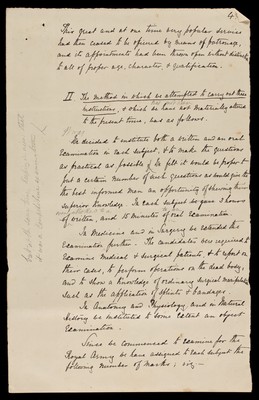 This great and at one time very popular service
had then ceased to be opened by means of patronage,
and its appointments had been thrown open without distinction
to all of proper age, character, & qualification.
II The method in which we attempted to carry out these
instructions, & which we have not materially altered
to the present time, was as follows.
We decided to institute both a written and an oral
Examination in each subject, & to make the questions
as practical as possible. We felt it would be proper to
put a certain number of such questions as would give to
the best informed men an opportunity of shewing their
superior knowledge. In each subject we gave 3 hours
of written, and 15 minutes of oral Examination.
In Medicine and in Surgery we extended the
Examination further. The candidates were required to
Examine Medical & Surgical patients, & to report on
their cases, to perform operations on the dead body,
and to show a knowledge of ordinary surgical manipulations
such as the application of splints & bandages.
In Anatomy and Physiology, and in Natural
History we instituted to some extent an object
Examination.
Since we commenced to examine for the
Royal Army we have assigned to each subject the
following number of marks; viz:—